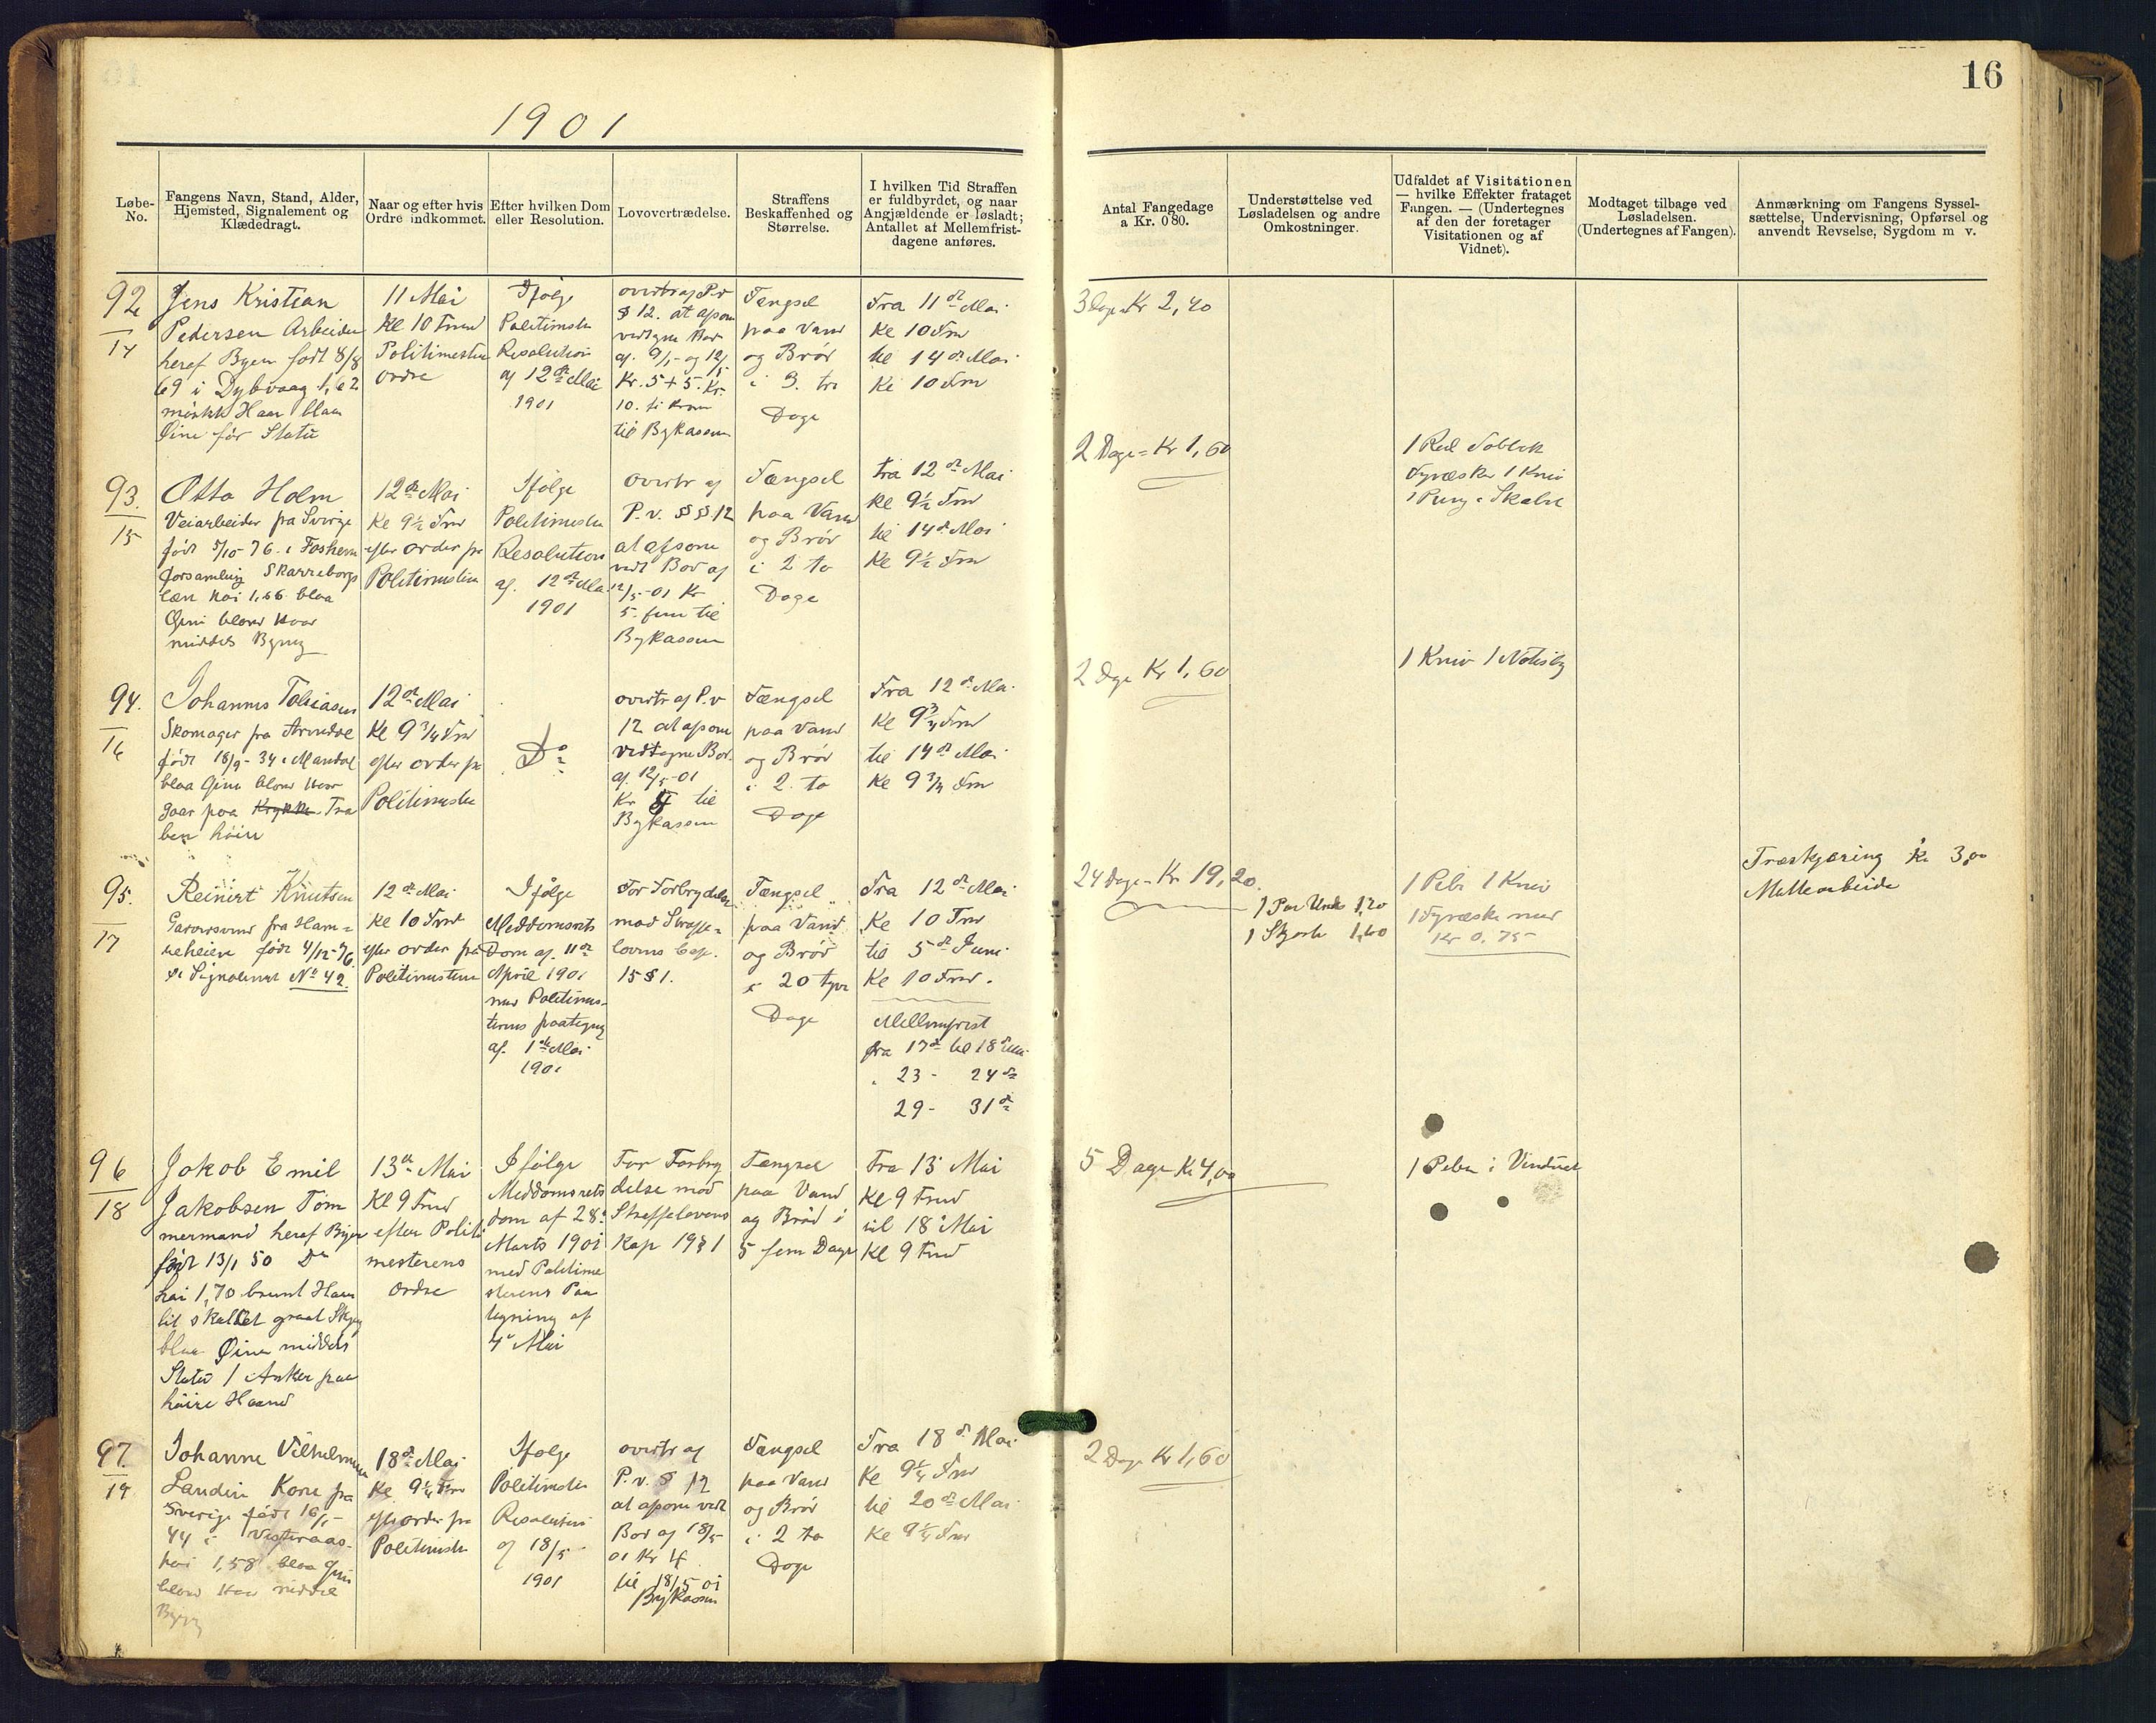 16
1901
Løbe-
No.
Fangens Navn, Stand, Alder,
Hjemsted, Signalement og
Klædedragt.
Naar og efter hvis
Ordre indkommet.
Efter hvilken Dom
eller Resolution.
Lovovertrædelse.
Straffens
Beskaffenhed og
Størrelse.
I hvilken Tid Straffen
er fuldbyrdet, og naar
Angjældende er løsladt;
Antallet af Mellemfrist-
dagene anføres.
Antal Fangedage
a Kr. 0 80.
Understøttelse ved
Løsladelsen og andre
Omkostninger.
Udfaldet af Visitationen
— hvilke Effekter frataget
Fangen. — (Undertegnes
af den der foretager
Visitationen og af
Vidnet).
Modtaget tilbage ved
Løsladelsen.
(Undertegnes af Fangen).
Anmærkning om Fangens Syssel-
sættelse, Undervisning, Opførsel og
anvendt Revselse, Sygdom m v.
92
14
Jens Kristian
Pedersen Arbeider
heraf Byen født 8/8
69 i Dybvaag 1,62
mørkt Haar blaa
Øine før Statu
11 Mai
Kl 10 Fmd
Politimester
Ordre
Ifølge
Politimester
Resolution
af 12te Mai
1901
overtr af P.v
§ 12. at afsone
vedtagne Bod
af 9/5 og 12/5
Kr. 5 + 5. Kr.
10. ti Kroner
til Bykassen
Fængsel
paa Vand
og Brød
i 3. tre
Dage
Fra 11te Mai
Kl 10 Fmd
til 14de Mai
Kl 10 Fmd
3 Dage Kr 2,40
93.
15
Otto Holm
Veiarbeider fra Sverige
født 5/10-76 i
forsamling Skarreborgs
læn høi 1,66 blaa
Øine blond Haar
middels Bygng
12te Mai
Kl 9½ Fmd
efter order fra
Politimesteren
Ifølge
Politimester
Resolution
af. 12te Mai
1901
overtr af
P. v. §§ 12
at afsone
vedt Bod af
12/5-01 Kr
5. fem til
Bykassen
Fængsel
paa Vand
og Brød
i 2 to
Dage
Fra 12te Mai
Kl 9½ Fmd
til 14de Mai
Kl 9½ Fmd
2 Dage = Kr 1,60
1 Kniv
1 Pung
94.
16
Johannes Tobiasen
Skomager fra Arendal
født 18/9-34 i Mandal
blaa Øine blond Haar
gaar paa Krykke Træ
ben høire
12te Mai
Kl 9¾ Fmd
efter order fra
Politimester
Do
overtr af P.v
12 at afsone
vedtagne Bod.
af. 12/5-01
Kr 4 til
Bykassen
Fængsel
paa Vand
og Brød
i 2. to
Dage
Fra 12te Mai
Kl 9¾ Fmd
til 14de Mai
Kl 9¾ Fmd
2 Dage Kr 1,60
1 Kniv 1 Notisbg
95.
17
Reinert Knutsen
fra Ham=
reheien født 4/12-76
se Signalement No 42.
12te Mai
Kl 10 Fmd
efter order fra
Politimesteren
Ifølge
Meddomsrets
Dom af. 11te
April 1901
med Politimes-
terens paategng
af. 1ste Mai
1901
For Forbrydelse
mod Straffe=
lovens Cap.
15 § 1.
Fængsel
paa Vand
og Brød
i 20 tyve
Dage
Fra 12te Mai
Kl 10 Fmd
til 5te Juni
Kl 10 Fmd.
Mellemfrist
fra 17de til 18de Mai
" 23 - 24de
29 - 31te
24 Dage = Kr 19,20.
1 Par 1,20
1 Skjorte 1,60
1 Pibe 1 Kniv
1 Fyræske med
Kr 0,75
Træskjæring Kr 3,00
Mattearbeide
96
18
Jakob Emil
Jakobsen Tøm
mermand heraf Byen
født 13/1 50 Do
høi 1,70 brunt Haar
lit skaldet graat Skjeg
blaa Øine middels
Statur 1 Anker paa
høire Haand
13de Mai
Kl 9 Fmd
efter Politi
mesterens
Ordre
Ifølge
Meddomsrets
dom af 28de
Marts 1901
med Politime
sterens Paa
tegning af
4de Mai
For Forbry
delse mod
Straffelovens
Kap 19 § 1
Fængsel
paa Vand
og Brød i
5 fem Dage
Fra 13 Mai
Kl 9 Fmd
til 18 Mai
Kl 9 Fmd
5 Dage Kr 4,00
1 Pibe i Vinduet
97.
19
Johanne Vilhelmine
Landin Kone fra
Sverige født 16/1-
44 i Vesteraas-
høi 1,58 blaa Øine
blond Haar middel
Bygng
18de Mai
Kl 9¼ Fmd
efter order fra
Politimester
Ifølge
Politimester
Resolution
af 18/5
1901
overtr af
P. v. § 12
at afsone vedt
Bod af 18/5
01 Kr 4
til 18/5 01
Bykassen
Fængsel
paa Vand
og Brød
i 2 to
Dage
Fra 18de Mai
Kl 9¼ Fmd
til 20de Mai
Kl 9¼ Fmd
2 Dage Kr 1,60